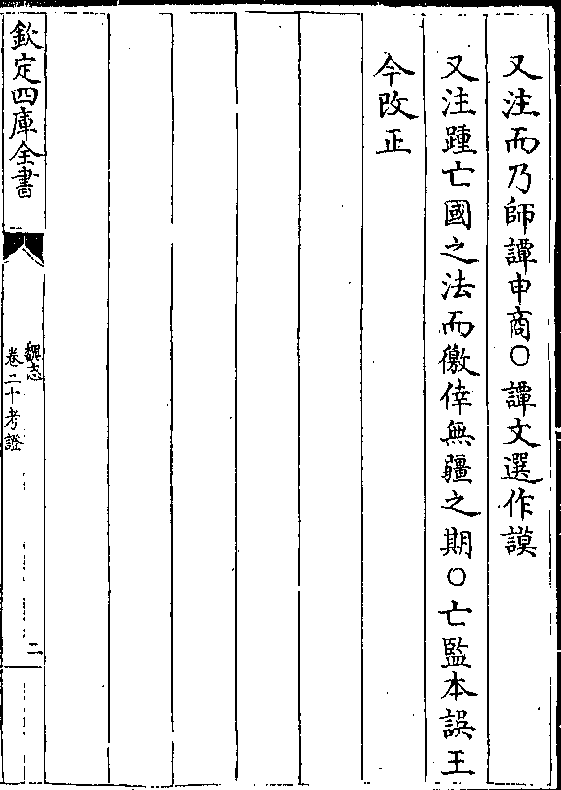 又注而乃師譚申商○譚文選作謨
又注踵亡國之法而徼倖無疆之期○亡監本誤王
今改正
欽定四庫全書
魏志
卷二十考證
二